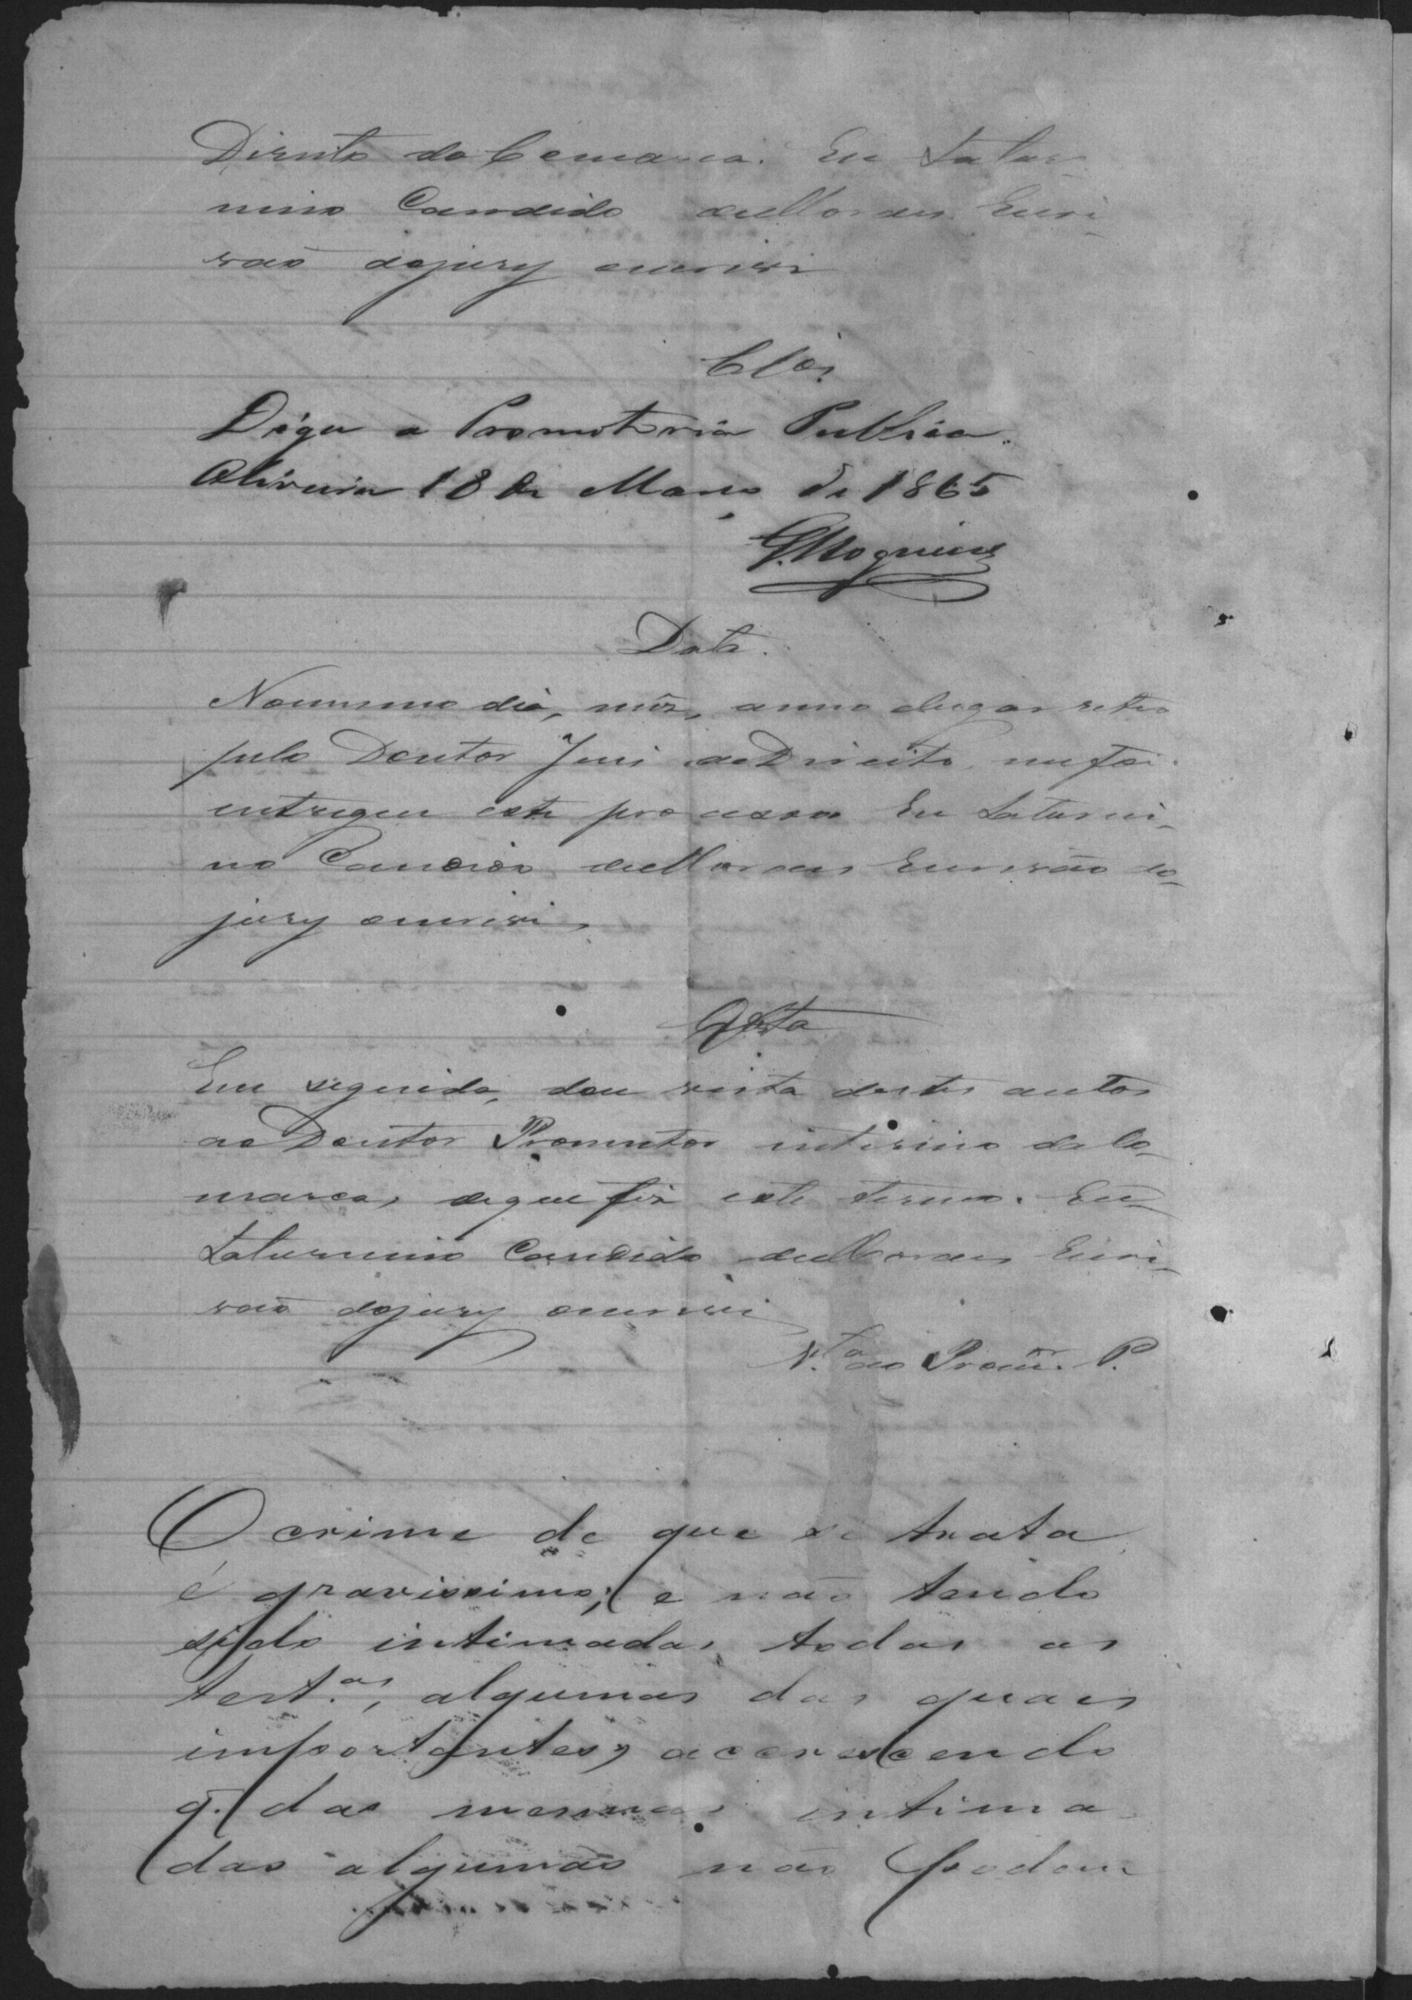 Direito da Comarca. Eu Satur-
nino Candido de Moraes Escri-
vaõ do jury escrevi
Clos.
Diga a Promotoria Publica.
Oliveira 18 de Março de 1865
Data.
No mesmo dia, mês, anno e lugar retro
pelo Doutor Juis de Direito, me foi
entregue este processo Eu Saturni-
no Candido de Moraes Escrivão do
jury escrevi
Vista
Em seguida, dou vista destes autos
ao Doutor Promotor interino da Co-
marca, de que fiz este termo. Eu
Saturnino Candido de Moraes Escri-
vaõ do jury escrevi
V.ta ao Promor. P.
O crime de que se trata
é gravissimo; e não tendo
sido intimadas todas as
test.as, algumas das quaes
importantes, accrescendo
q. das mesmas intima
das algumas não podem